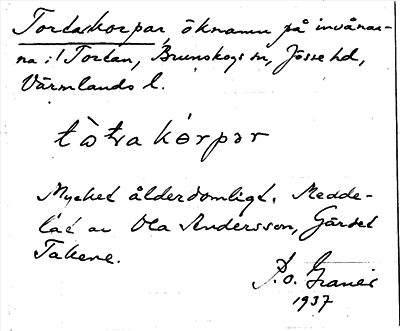 Tortakorpar, öknamn på invånar-
na i Tortan, Brunskogs sn, Jösse hd,
Värmlands l.
tòtrakórpər
Mycket ålderdomligt. Medde-
lat av Ola Andersson, Gärdet
Takene.
P. O. Granér
1937